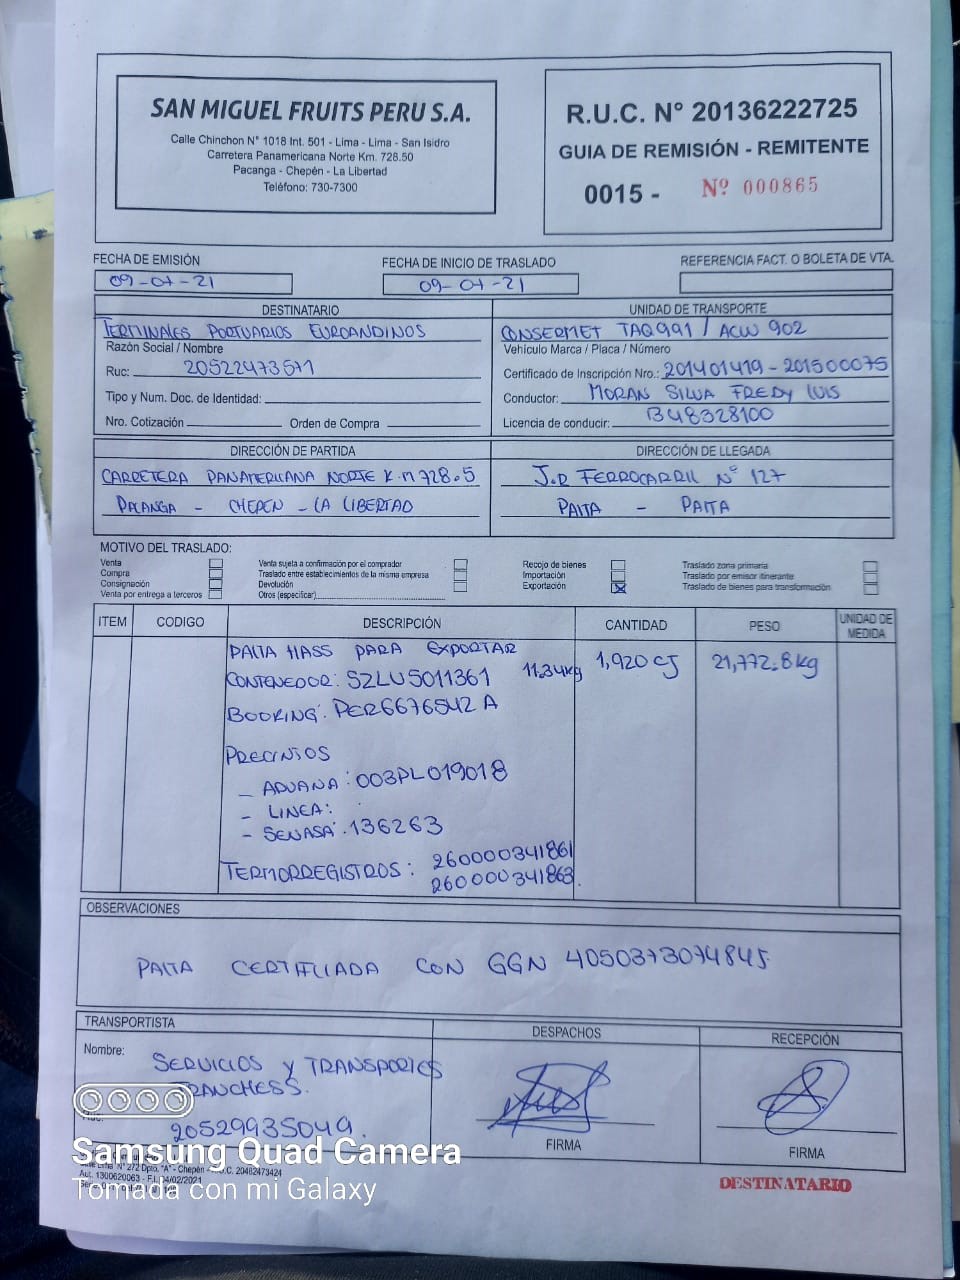 SAN MIGUEL FRUITS PERU S.A.
Calle Chinchon N° 1018 Int. 501 - Lima - Lima - San Isidro
Carretera Panamericana Norte Km. 728.50
Pacanga - Chepén - La Libertad
Teléfono: 730-7300
R.U.C. N° 20136222725
GUIA DE REMISIÓN - REMITENTE
0015 - Nº 000865
FECHA DE EMISIÓN
09-07-21
FECHA DE INICIO DE TRASLADO
09-07-21
REFERENCIA FACT. O BOLETA DE VTA.
DESTINATARIO
TERMINALES PORTUARIOS EUROANDINOS
Razón Social / Nombre
Ruc: 20522473571
Tipo y Num. Doc. de Identidad:
Nro. Cotización Orden de Compra
UNIDAD DE TRANSPORTE
CONSERMET TAQ991 / ACW 902
Vehículo Marca / Placa / Número
Certificado de Inscripción Nro.: 201401419 - 201500075
Conductor: MORAN SILVA FREDY LUIS
Licencia de conducir: B48328100
DIRECCIÓN DE PARTIDA
CARRETERA PANAMERICANA NORTE K.M 728.5
PACANGA - CHEPEN - LA LIBERTAD
DIRECCIÓN DE LLEGADA
J.R FERROCARRIL N° 127
PAITA - PAITA
MOTIVO DEL TRASLADO:
Venta
Compra
Consignación
Venta por entrega a terceros
Venta sujeta a confirmación por el comprador
Traslado entre establecimientos de la misma empresa
Devolución
Otros (especificar)
Recojo de bienes
Importación
Exportación X
Traslado zona primaria
Traslado por emisor itinerante
Traslado de bienes para transformación
ITEM CODIGO DESCRIPCIÓN CANTIDAD PESO UNIDAD DE MEDIDA
PALTA HASS PARA EXPORTAR
CONTENEDOR: SZLU5011361 11.34kg 1,920 CJ 21,772.8kg
BOOKING: PER6676542 A
PRECINTOS
- ADUANA: 003PL019018
- LINEA:
- SENASA: 136263
TERMORREGISTROS: 260000341861
260000341863
OBSERVACIONES
PALTA CERTIFICADA CON GGN 4050373074845
TRANSPORTISTA
Nombre: SERVICIOS Y TRANSPORTES
TRANCHESS.
20529935049.
DESPACHOS
FIRMA
RECEPCIÓN
FIRMA
N° 272 Dpto. "A" - Chepén - R.U.C. 20482473424
Aut. 1300620063 - F.I. 04/02/2021
DESTINATARIO
Samsung Quad Camera
Tomada con mi Galaxy